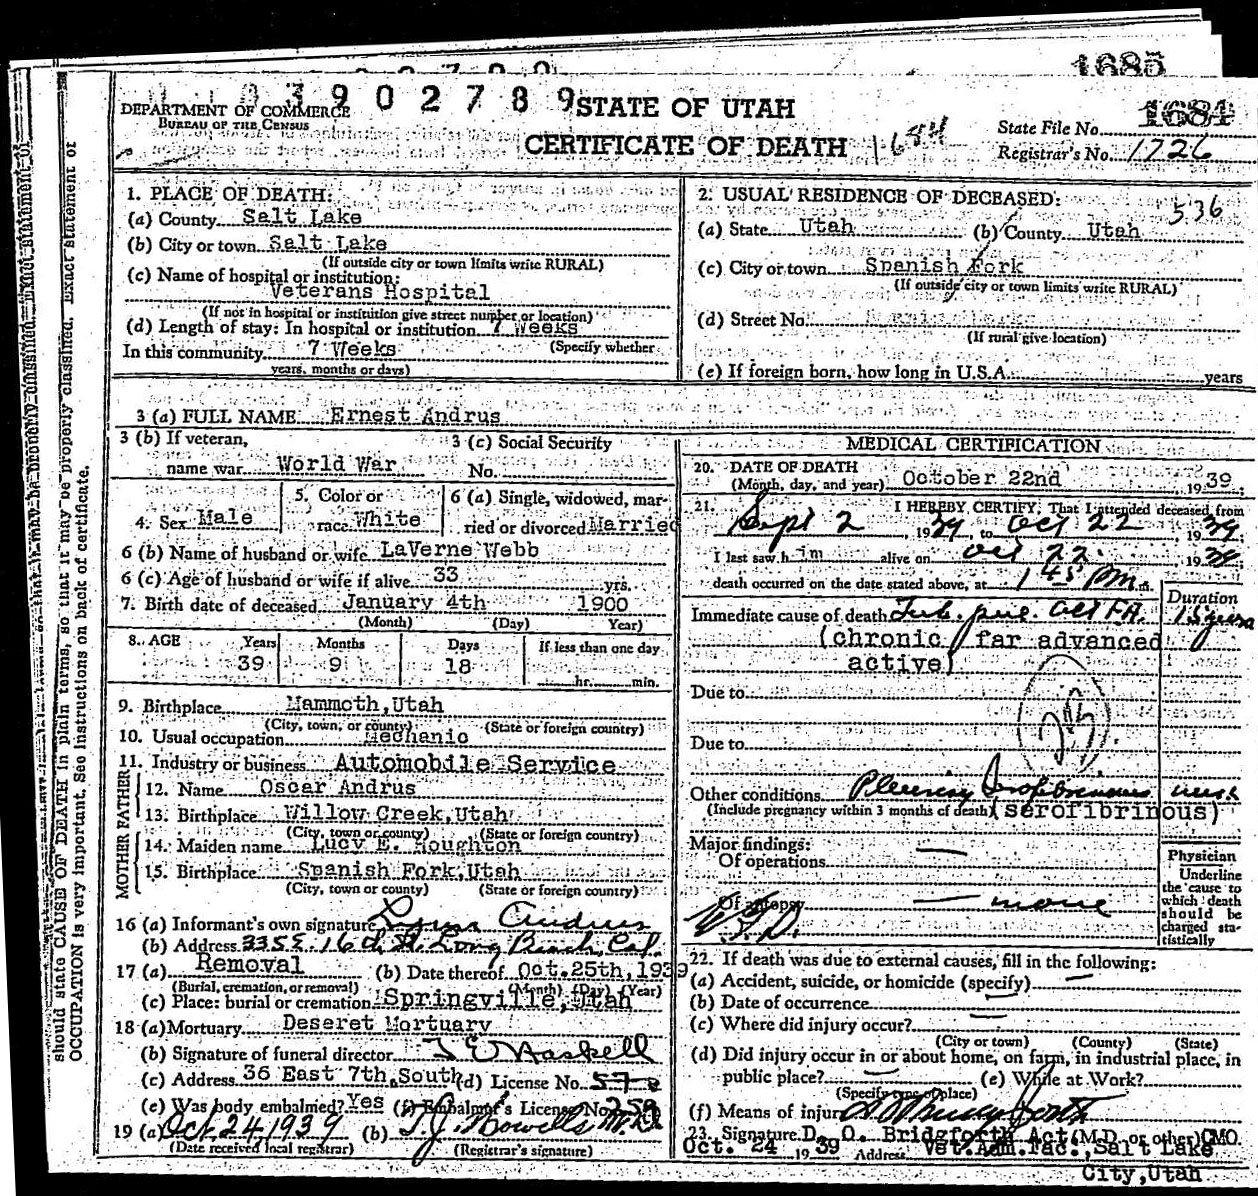 1685
03902789
DEPARTMENT OF COMMERCE
BUREAU OF THE CENSUS
STATE OF UTAH
CERTIFICATE OF DEATH
1684
State File No. 1684
Registrar's No. 1726
1. PLACE OF DEATH:
(a) County Salt Lake
(b) City or town Salt Lake
(If outside city or town limits write RURAL)
(c) Name of hospital or institution:
Veterans Hospital
(If not in hospital or institution give street number or location)
(d) Length of stay: In hospital or institution 7 Weeks
(Specify whether
In this community 7 Weeks
years, months or days)
2. USUAL RESIDENCE OF DECEASED:
536
(a) State Utah (b) County Utah
(c) City or town Spanish Fork
(If outside city or town limits write RURAL)
(d) Street No.
(If rural give location)
(e) If foreign born, how long in U.S.A. years
3 (a) FULL NAME Ernest Andrus
3 (b) If veteran,
name war World War
3 (c) Social Security
No.
4. Sex Male
5. Color or
race White
6 (a) Single, widowed, mar-
ried or divorced Married
6 (b) Name of husband or wife LaVerne Webb
6 (c) Age of husband or wife if alive 33 yrs.
7. Birth date of deceased January 4th 1900
(Month) (Day) Year)
8. AGE Years Months Days If less than one day
39 9 18 hr. min.
9. Birthplace Mammoth, Utah
(City, town, or county) (State or foreign country)
10. Usual occupation Mechanic
11. Industry or business Automobile Service
FATHER
12. Name Oscar Andrus
13. Birthplace Willow Creek, Utah
(City, town or county) (State or foreign country)
MOTHER
14. Maiden name Lucy E. Houghton
15. Birthplace Spanish Fork, Utah
(City, town or county) (State or foreign country)
16 (a) Informant's own signature Andrus
(b) Address 335 E. 16th St. Long Beach, Cal.
17 (a) Removal (b) Date thereof Oct. 25th, 1939
(Burial, cremation, or removal) (Month) (Day) (Year)
(c) Place: burial or cremation Springville, Utah
18 (a) Mortuary Deseret Mortuary
(b) Signature of funeral director Haskell
(c) Address 36 East 7th South (d) License No. 57
(e) Was body embalmed? Yes (f) Embalmer's License No. 259
19 (a) Oct. 24, 1939 (b) T. J. Howells M.D.
(Date received local registrar) (Registrar's signature)
MEDICAL CERTIFICATION
20. DATE OF DEATH
(Month, day, and year) October 22nd 1939
21. I HEREBY CERTIFY, That I attended deceased from
Sept 2, 1939, to Oct 22 1939
I last saw him alive on Oct 22 1939
death occurred on the date stated above, at 1 45 P.m.
Duration
Immediate cause of death Tub. pul.
(chronic far advanced
active)
Due to
Due to
Other conditions Pleurisy serofibrinous
(Include pregnancy within 3 months of death) (serofibrinous)
Major findings:
Of operations —
Of autopsy — none
Physician
Underline
the cause to
which death
should be
charged sta-
tistically
22. If death was due to external causes, fill in the following:
(a) Accident, suicide, or homicide (specify) —
(b) Date of occurrence —
(c) Where did injury occur? —
(City or town) (County) (State)
(d) Did injury occur in or about home, on farm, in industrial place, in
public place? — (e) While at Work?
(Specify type of place)
(f) Means of injury
23. Signature D. O. Bridgforth Act (M.D. or other) CMO.
Oct. 24 1939 Address Vet. Adm. Fac., Salt Lake
City, Utah
should state CAUSE OF DEATH in plain terms, so that it may be properly classified. Exact statement of
OCCUPATION is very important. See instructions on back of certificate.